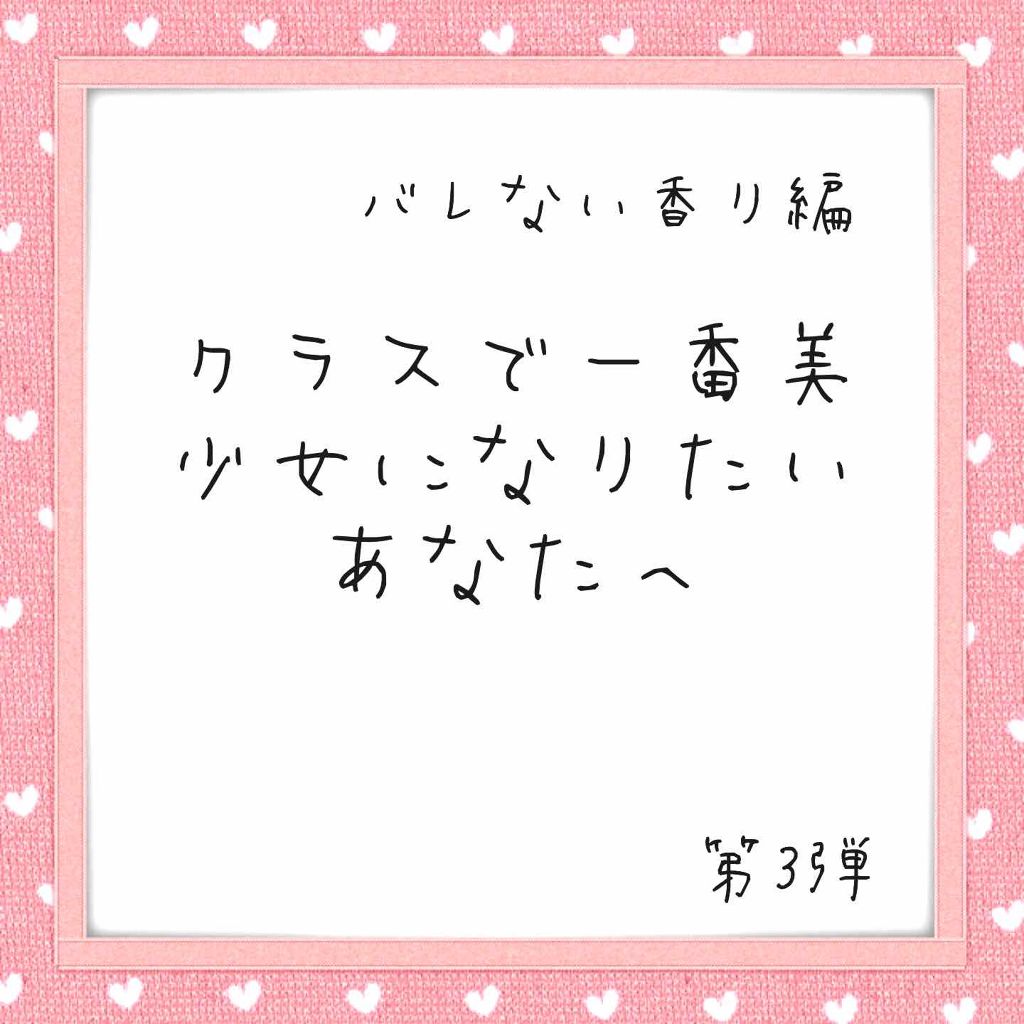 バレない香り編
クラスで一番美
少女になりたい
あなたへ
第3弾